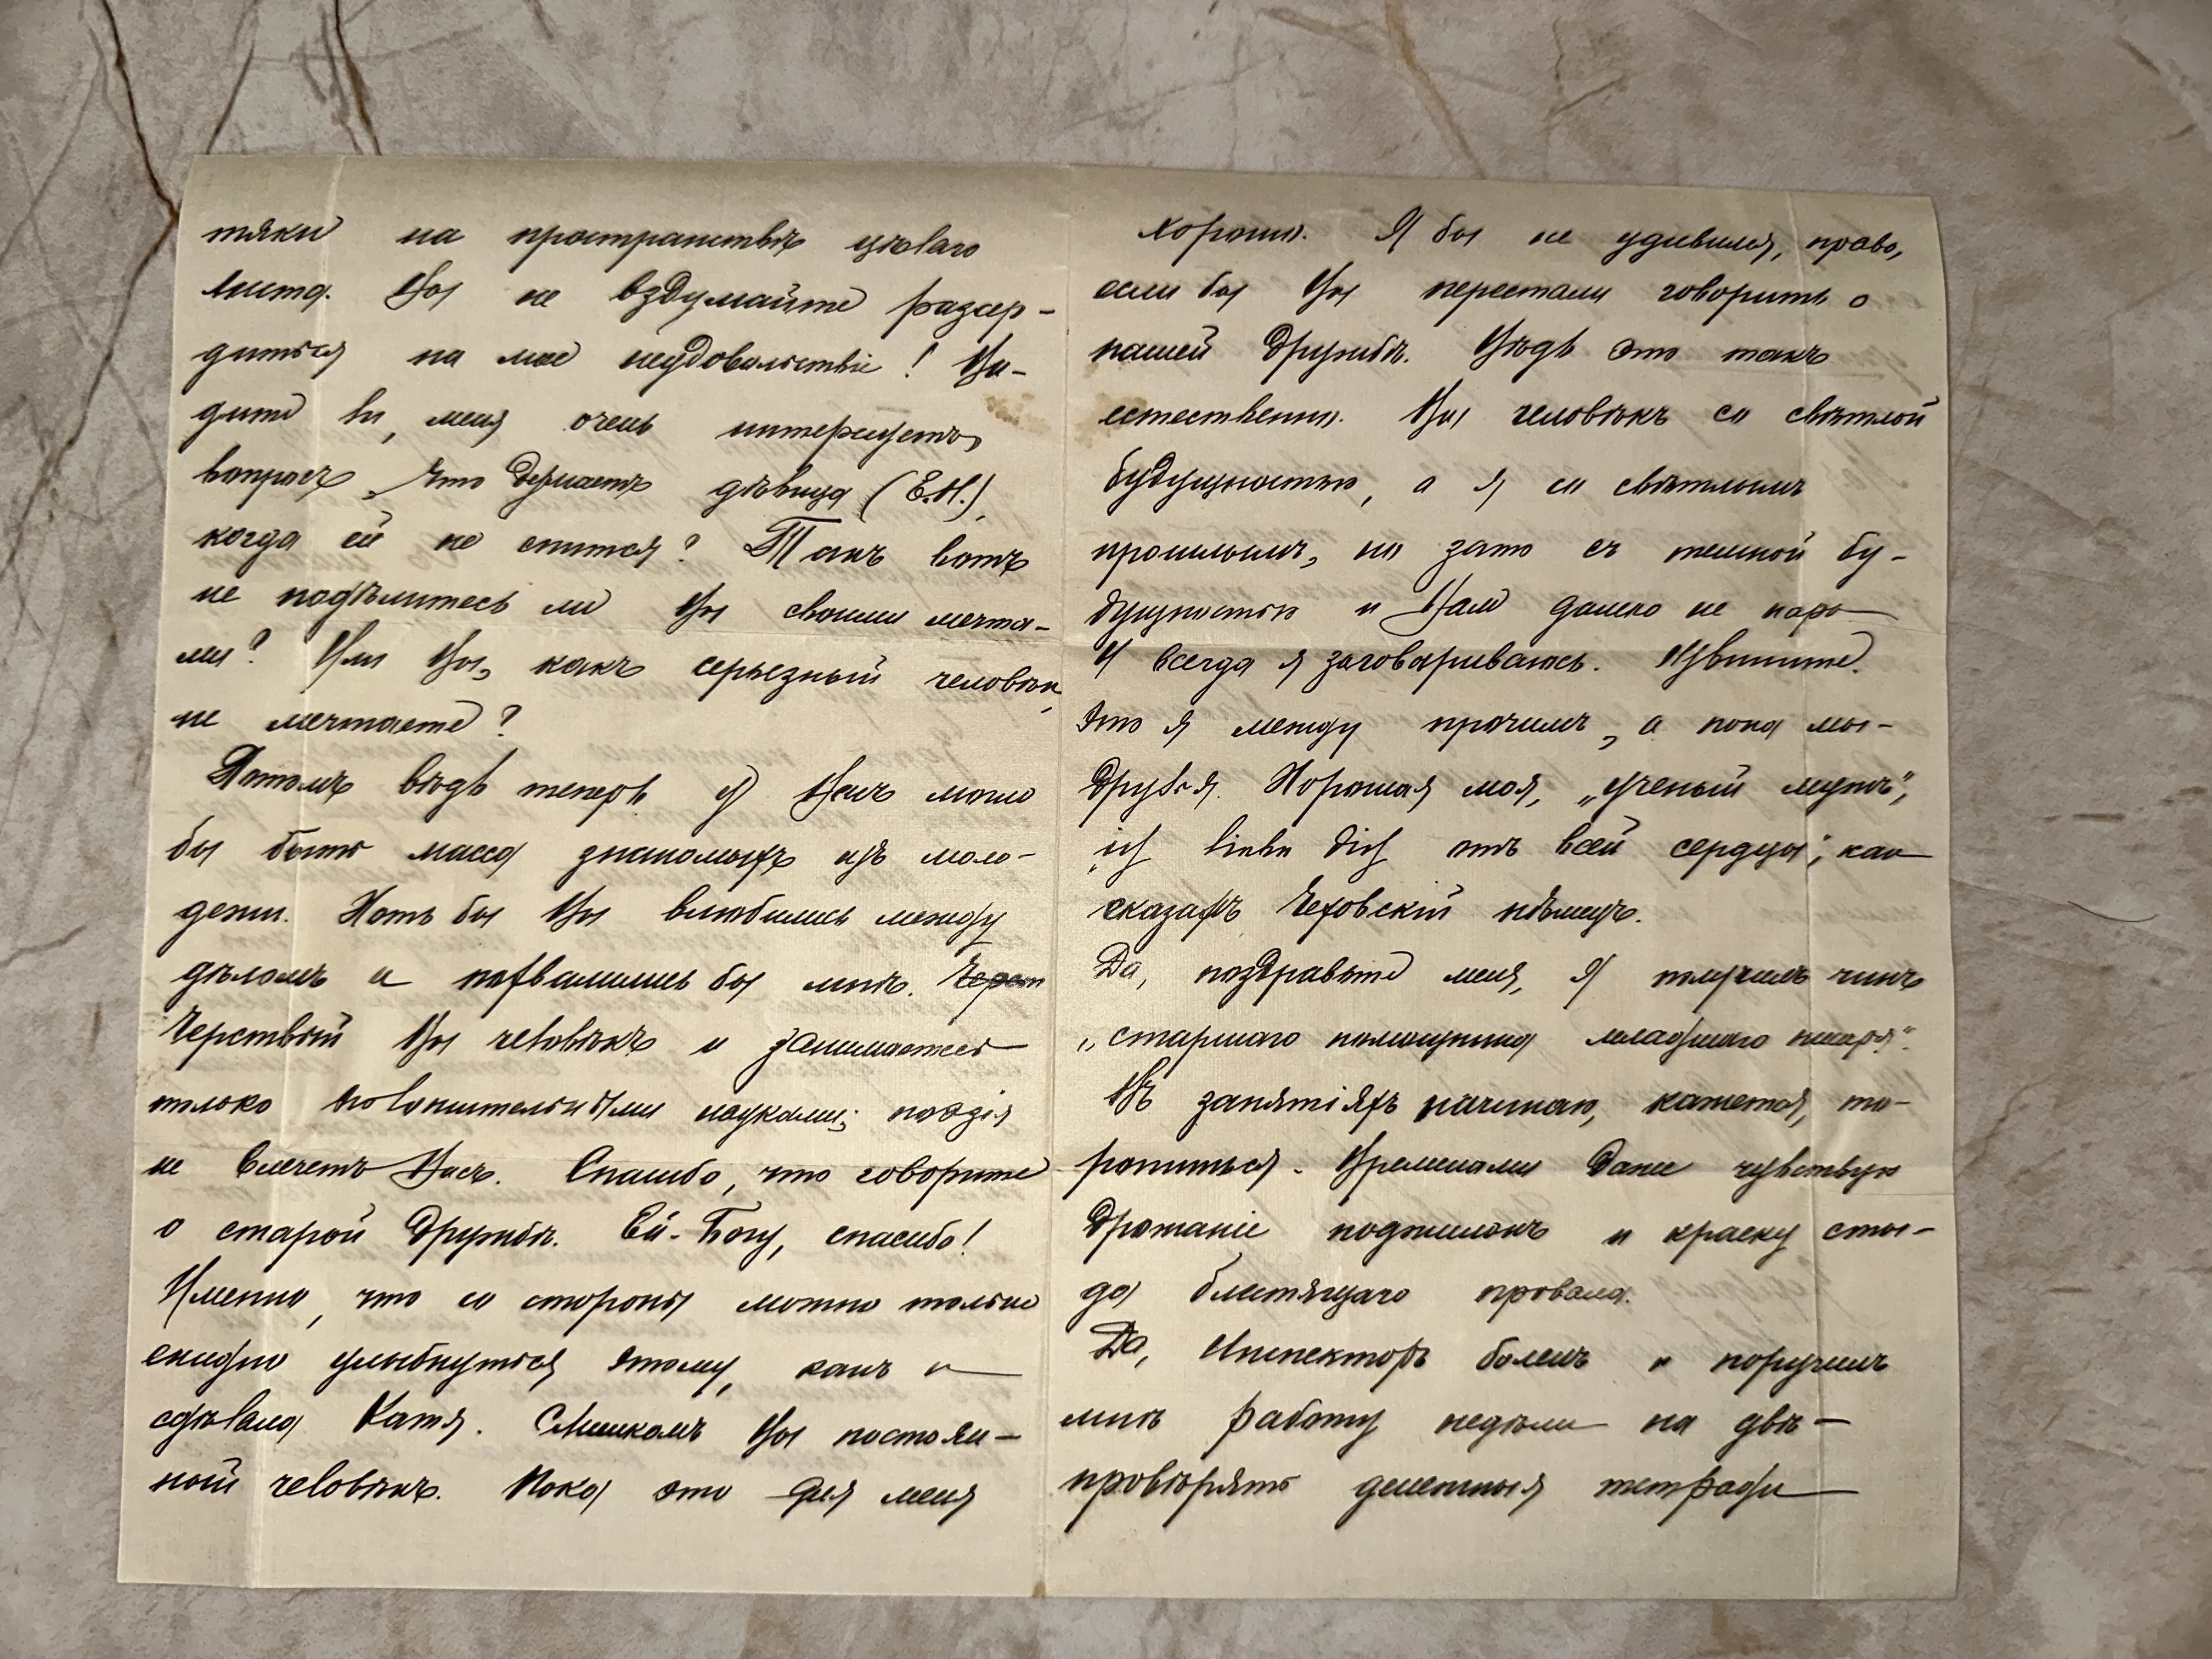 тяки на пространствѣ цѣлаго
листа. Вы не вздумайте разсер-
диться на мое неудовольствіе! Ви-
дите ли, меня очень интересуетъ
вопросъ, что дѣлаетъ дѣвица (Е.Н.),
когда ей не спится? Такъ вотъ
не подѣлитесь ли Вы своими мечта-
ми? Или Вы, какъ серьезный человѣкъ,
не мечтаете?
Потомъ вѣдь теперь у Васъ могло
бы быть масса знакомыхъ изъ моло-
дежи. Хоть бы Вы влюбились между
дѣломъ и похвалились бы мнѣ. Черст
Черствый Вы человѣкъ и занимаетесь
только положительными науками; поэзія
не влечетъ Васъ. Спасибо, что говорите
о старой дружбѣ. Ей-Богу, спасибо!
Именно, что со стороны можно только
ехидно улыбнуться этому, какъ и
сдѣлала Катя. Слишкомъ Вы постоян-
ный человѣкъ. Пока это для меня
хорошо. Я бы не удивился, право,
если бы Вы перестали говорить о
нашей дружбѣ. Вѣдь это такъ
естественно. Вы человѣкъ со свѣтлой
будущностью, а я со свѣтлымъ
прошлымъ, но зато съ темной бу-
дущностью и Вам далеко не пара
И всегда я заговариваюсь. Извините.
Это я между прочимъ, а пока мы-
друзья. Хорошая моя, „ученый мужъ",
„ich liebe dich отъ всей сердцы", как
сказалъ Чеховскій нѣмецъ.
Да, поздравьте меня, я получилъ чинъ
„старшаго помощника младшаго писаря".
Въ занятіяхъ начинаю, кажется, то-
ропиться. Временами даже чувствую
дрожаніе поджилокъ и краску сты-
да блестящаго провала.
Да, Инспекторъ боленъ и поручилъ
мнѣ работу недѣли на двѣ-
провѣрять денежныя тетради